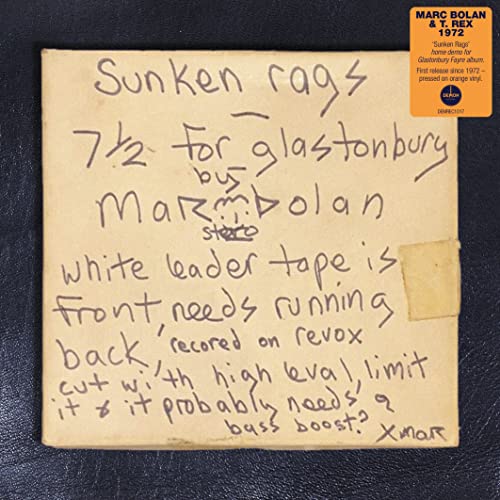 MARC BOLAN
& T. REX
1972
'Sunken Rags'
home demo for
Glastonbury Fayre album.
First release since 1972 –
pressed on orange vinyl.
DEMON
DEMREC1017
Sunken rags
7½ for glastonbury
by
Marc bolan
stereo
white leader tape is
front, needs running
back, recored on revox
cut with high leval, limit
it & it probably needs a
bass boost?
X marc